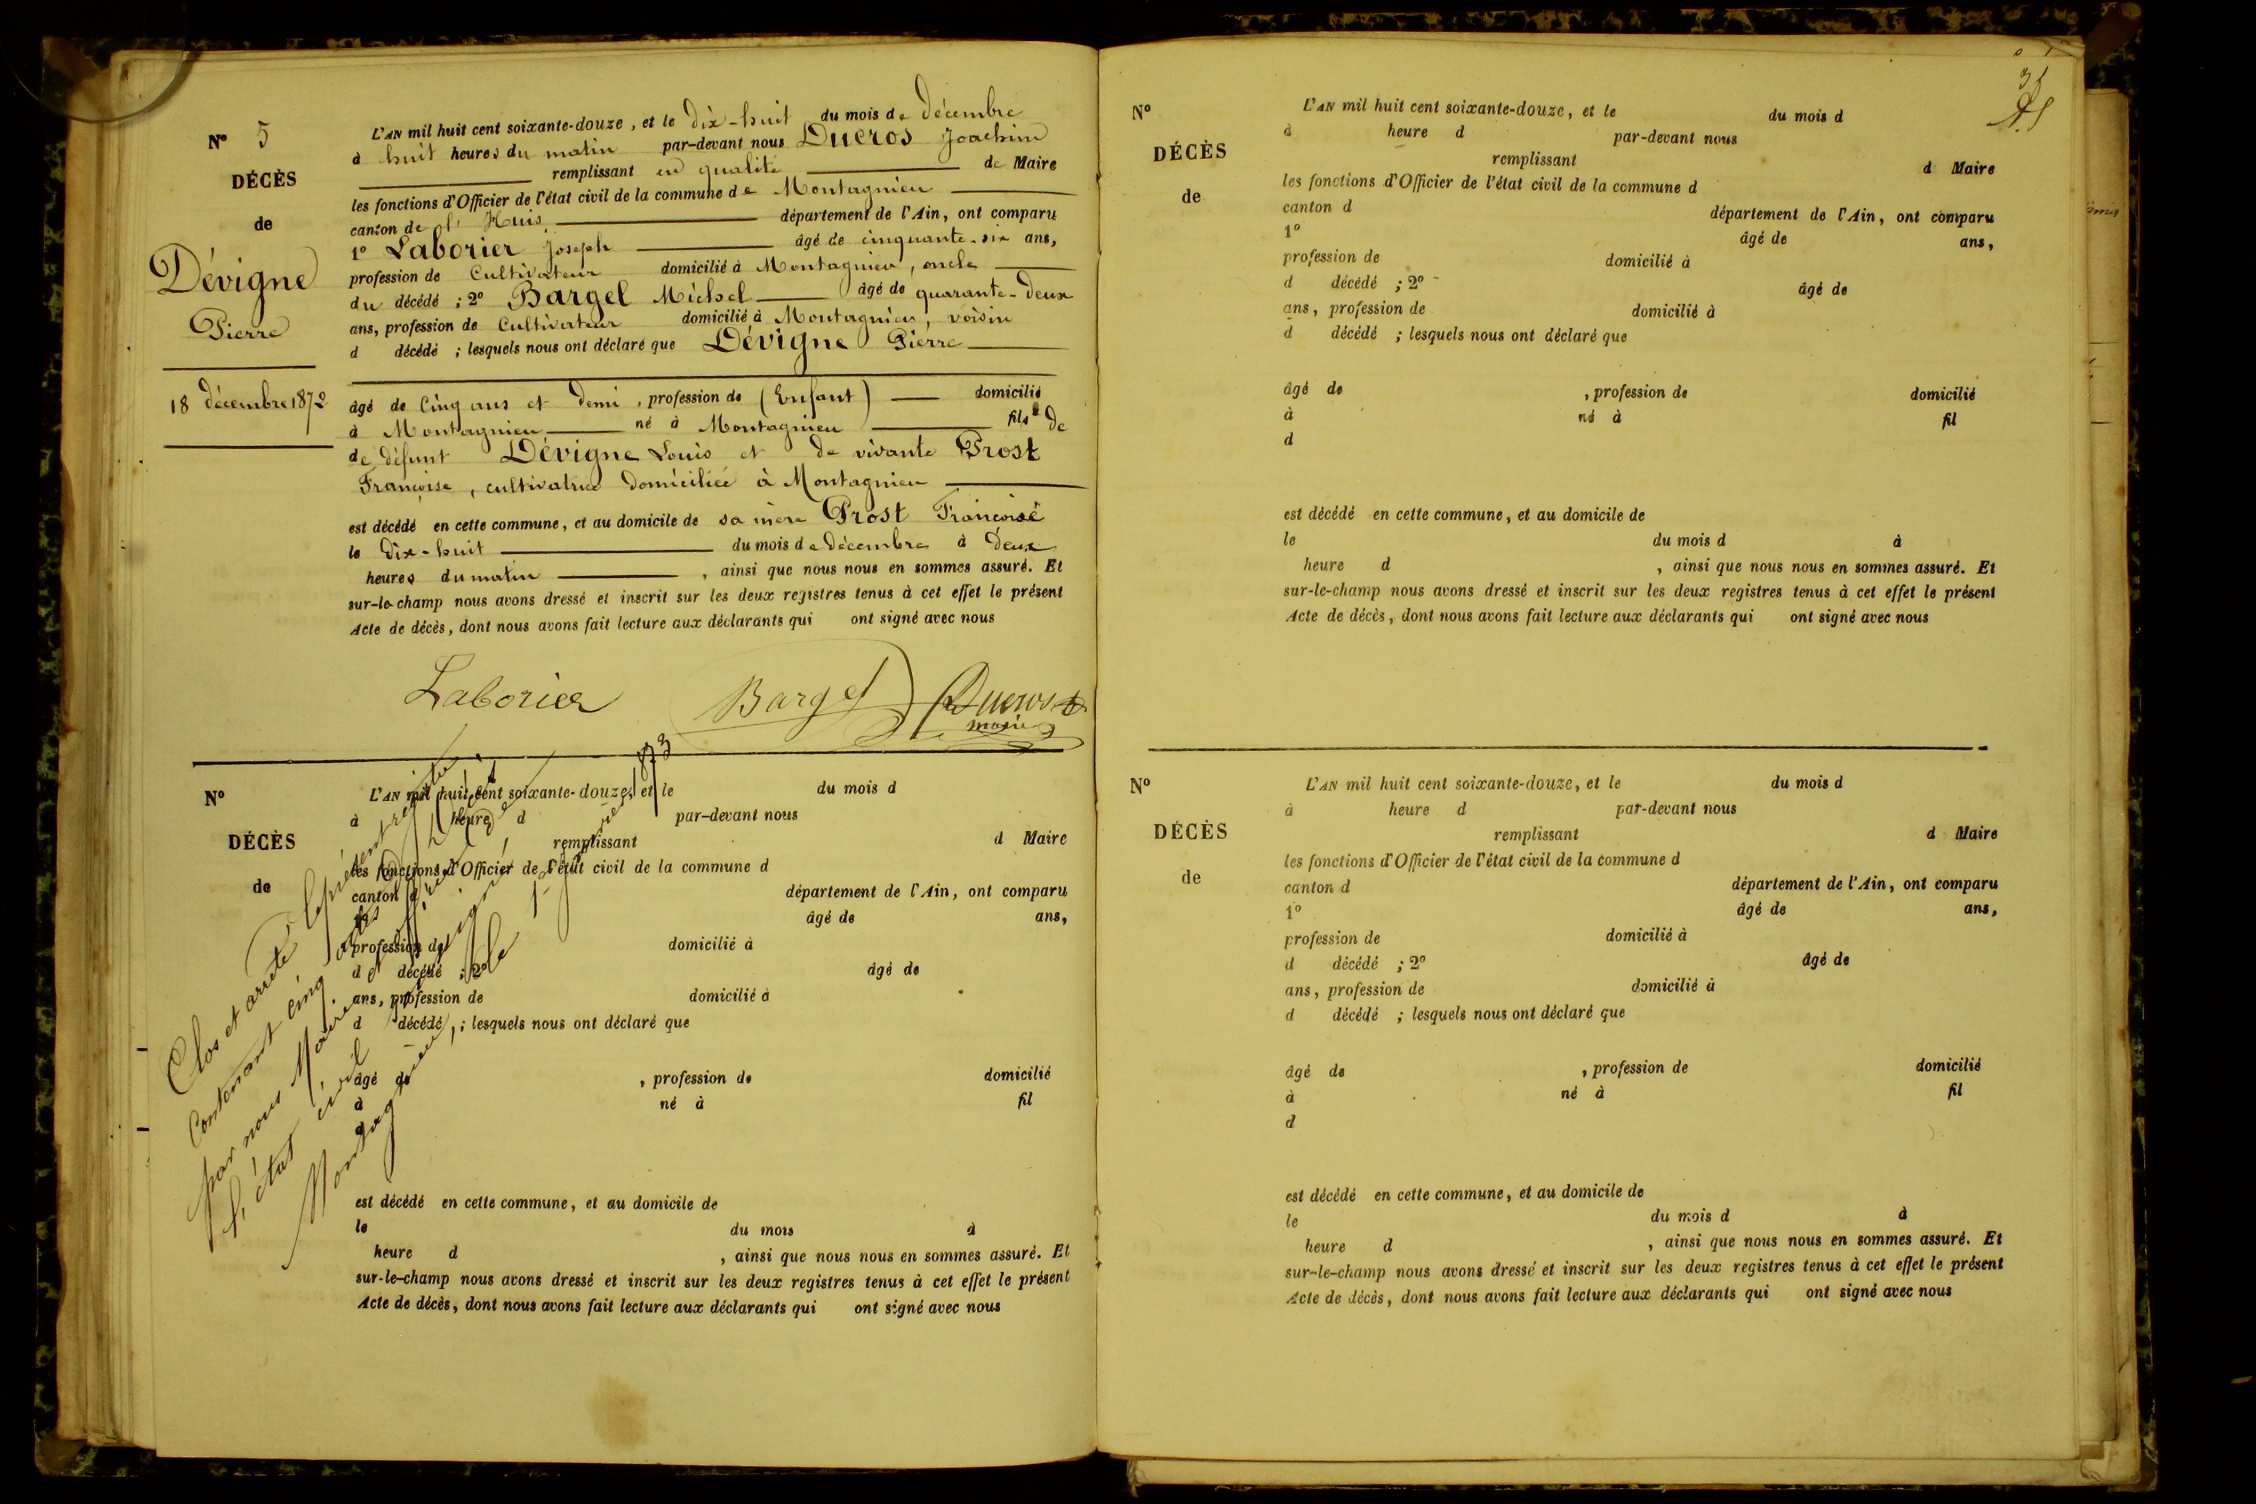 Nº 5
DÉCÈS
de
Dévigne
Pierre
18 décembre 1872
L'AN mil huit cent soixante-douze, et le dix-huit du mois de décembre
à huit heures du matin par-devant nous Dueros Joachim
remplissant en qualité de Maire
les fonctions d'Officier de l'état civil de la commune de Montagnieu
canton de l'Huis département de l'Ain, ont comparu
1º Laborier Joseph âgé de cinquante-six ans,
profession de Cultivateur domicilié à Montagnieu, oncle
du décédé ; 2º Bargel Michel âgé de quarante-deux
ans, profession de Cultivateur domicilié à Montagnieu, voisin
d décédé ; lesquels nous ont déclaré que Dévigne Pierre
âgé de Cinq ans et demi, profession de (Enfant) domicilié
à Montagnieu né à Montagnieu fils de
de défunt Dévigne Louis et de vivante Prost
Françoise, cultivatrice domiciliée à Montagnieu
est décédé en cette commune, et au domicile de sa mère Prost Françoise
le dix-huit du mois de décembre à deux
heures du matin, ainsi que nous nous en sommes assuré. Et
sur-le-champ nous avons dressé et inscrit sur les deux registres tenus à cet effet le présent
Acte de décès, dont nous avons fait lecture aux déclarants qui ont signé avec nous
Laborier Bargel Dueros
maire
Nº
DÉCÈS
de
L'AN mil huit cent soixante-douze, et le du mois d
à heure d par-devant nous
remplissant d Maire
les fonctions d'Officier de l'état civil de la commune d
canton d département de l'Ain, ont comparu
1º âgé de ans,
profession de domicilié à
d décédé ; 2º âgé de
ans, profession de domicilié à
d décédé ; lesquels nous ont déclaré que
âgé de , profession de domicilié
à né à fil
d
est décédé en cette commune, et au domicile de
le du mois à
heure d , ainsi que nous nous en sommes assuré. Et
sur-le-champ nous avons dressé et inscrit sur les deux registres tenus à cet effet le présent
Acte de décès, dont nous avons fait lecture aux déclarants qui ont signé avec nous
Clos et arrêté le présent registre
Contenant cinq actes de décès
par nous Maire et officier de
l'état civil soussigné
Montagnieu, le 1er janvier 1873
31
Nº
DÉCÈS
de
L'AN mil huit cent soixante-douze, et le du mois d
à heure d par-devant nous
remplissant d Maire
les fonctions d'Officier de l'état civil de la commune d
canton d département de l'Ain, ont comparu
1º âgé de ans,
profession de domicilié à
d décédé ; 2º âgé de
ans, profession de domicilié à
d décédé ; lesquels nous ont déclaré que
âgé de , profession de domicilié
à né à fil
d
est décédé en cette commune, et au domicile de
le du mois d à
heure d , ainsi que nous nous en sommes assuré. Et
sur-le-champ nous avons dressé et inscrit sur les deux registres tenus à cet effet le présent
Acte de décès, dont nous avons fait lecture aux déclarants qui ont signé avec nous
Nº
DÉCÈS
de
L'AN mil huit cent soixante-douze, et le du mois d
à heure d par-devant nous
remplissant d Maire
les fonctions d'Officier de l'état civil de la commune d
canton d département de l'Ain, ont comparu
1º âgé de ans,
profession de domicilié à
d décédé ; 2º âgé de
ans, profession de domicilié à
d décédé ; lesquels nous ont déclaré que
âgé de , profession de domicilié
à né à fil
d
est décédé en cette commune, et au domicile de
le du mois d à
heure d , ainsi que nous nous en sommes assuré. Et
sur-le-champ nous avons dressé et inscrit sur les deux registres tenus à cet effet le présent
Acte de décès, dont nous avons fait lecture aux déclarants qui ont signé avec nous